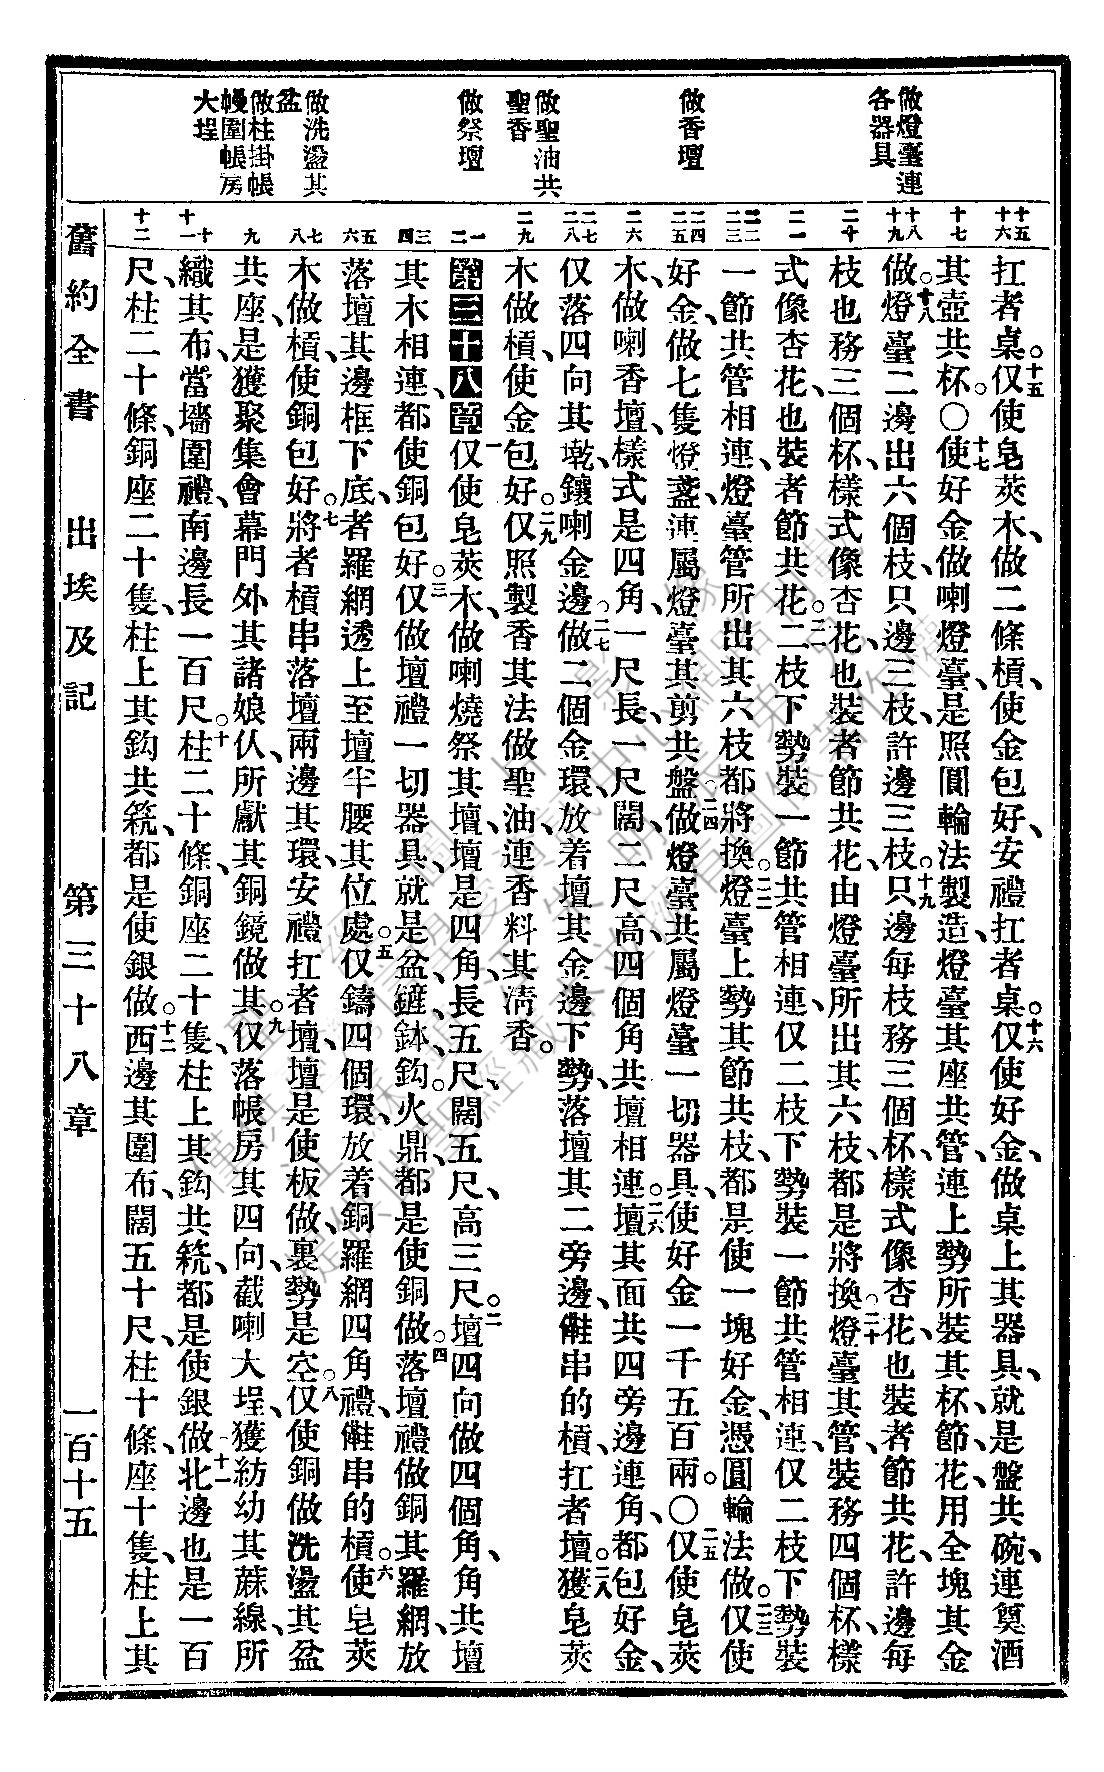 做燈臺連
各器具
做香壇
做聖油共
聖香
做祭壇
做洗盪其
盆
做柱掛帳
幔圍帳房
大埕
十五 十六 十七 十八 十九 二十 二一 二二 二三 二四 二五 二六 二七 二八 二九 一 二 三 四 五 六 七 八 九 十 十一 十二
扛者桌。十五仅使皂莢木、做二條槓、使金包好、安禮扛者桌。十六仅使好金、做桌上其器具、就是盤共碗、連奠酒
其壺共杯。○十七使好金做喇燈臺、是照圓輪法製造、燈臺其座共管、連上勢所裝其杯、節、花、用全塊其金
做。十八燈臺二邊出六個枝、只邊三枝、許邊三枝。十九只邊每枝務三個杯、樣式像杏花、也裝者節共花、許邊每
枝也務三個杯、樣式像杏花也裝者節共花、由燈臺所出其六枝、都是將換。二十燈臺其管、裝務四個杯、樣
式像杏花、也裝者節共花。二一二枝下勢裝一節共管相連、仅二枝下勢裝一節共管相連、仅二枝下勢裝
一節共管相連、燈臺管所出其六枝都將換。二二燈臺上勢其節共枝、都是使一塊好金、憑圓輪法做。二三仅使
好金、做七隻燈盞、連屬燈臺其剪共盤。二四做燈臺共屬燈臺一切器具、使好金一千五百兩。○二五仅使皂莢
木、做喇香壇、樣式是四角、一尺長、一尺闊、二尺高、四個角共壇相連。二六壇其面共四旁邊連角、都包好金、
仅落四向其墘、鑲喇金邊。二七做二個金環、放着壇其金邊下勢、落壇其二旁邊、毪串的槓、扛者壇。二八獲皂莢
木做槓、使金包好。二九仅照製香其法做聖油、連香料其清香。
第三十八章一仅使皂莢木、做喇燒祭其壇、壇是四角、長五尺、闊五尺、高三尺。二壇四向做四個角、角共壇
其木相連、都使銅包好。三仅做壇禮一切器具、就是盆、鏟、鉢、鈎、火鼎、都是使銅做。四落壇禮做銅其羅網、放
落壇其邊框下底、者羅網透上至壇半腰其位處。五仅鑄四個環、放着銅羅網四角禮、毪串的槓。六使皂莢
木做槓、使銅包好。七將者槓串落壇兩邊其環、安禮扛者壇、壇是使板做、裏勢是空。八仅使銅做洗盪其盆
共座、是獲聚集會幕門外其諸娘仈、所獻其銅鏡做其。九仅落帳房其四向、截喇大埕、獲紡幼其蔴線、所
織其布、當墻圍禮、南邊長一百尺。十柱二十條、銅座二十隻、柱上其鈎共䈪、都是使銀做。十一北邊也是一百
尺、柱二十條、銅座二十隻、柱上其鈎共䈪、都是使銀做。十二西邊其圍布、闊五十尺、柱十條、座十隻、柱上其
舊約全書 出埃及記 第三十八章 一百十五